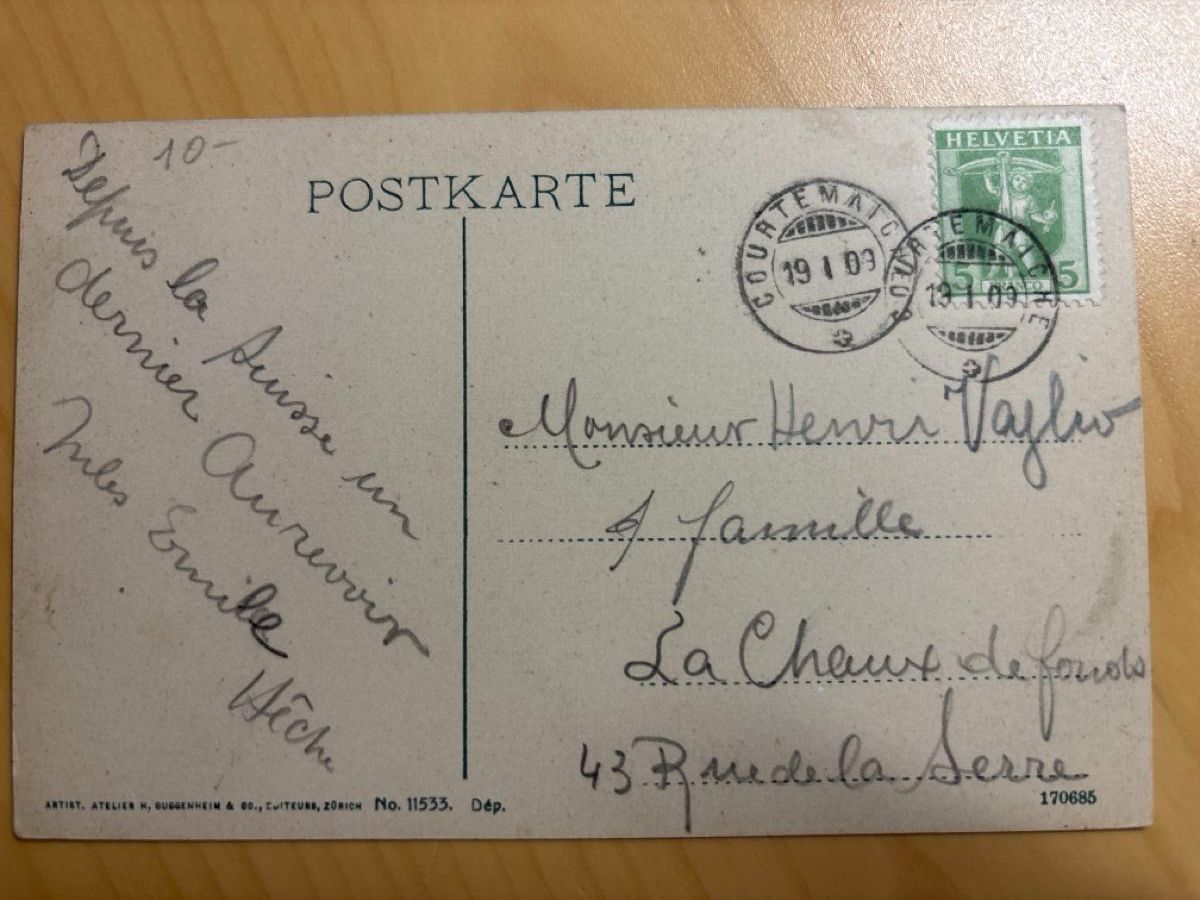 10-
POSTKARTE
Depuis la Suisse un
dernier Aurevoir
Jules Emile
Hêche
HELVETIA
5 5
FRANCO
COURTEMAICHE
19 I 09
COURTEMAICHE
19 I 09
Monsieur Henri Vaglio
& famille
La Chaux de fonds
43 Rue de la Serre
170685
ARTIST. ATELIER H. GUGGENHEIM & CO., EDITEURS, ZÜRICH No. 11533. Dép.